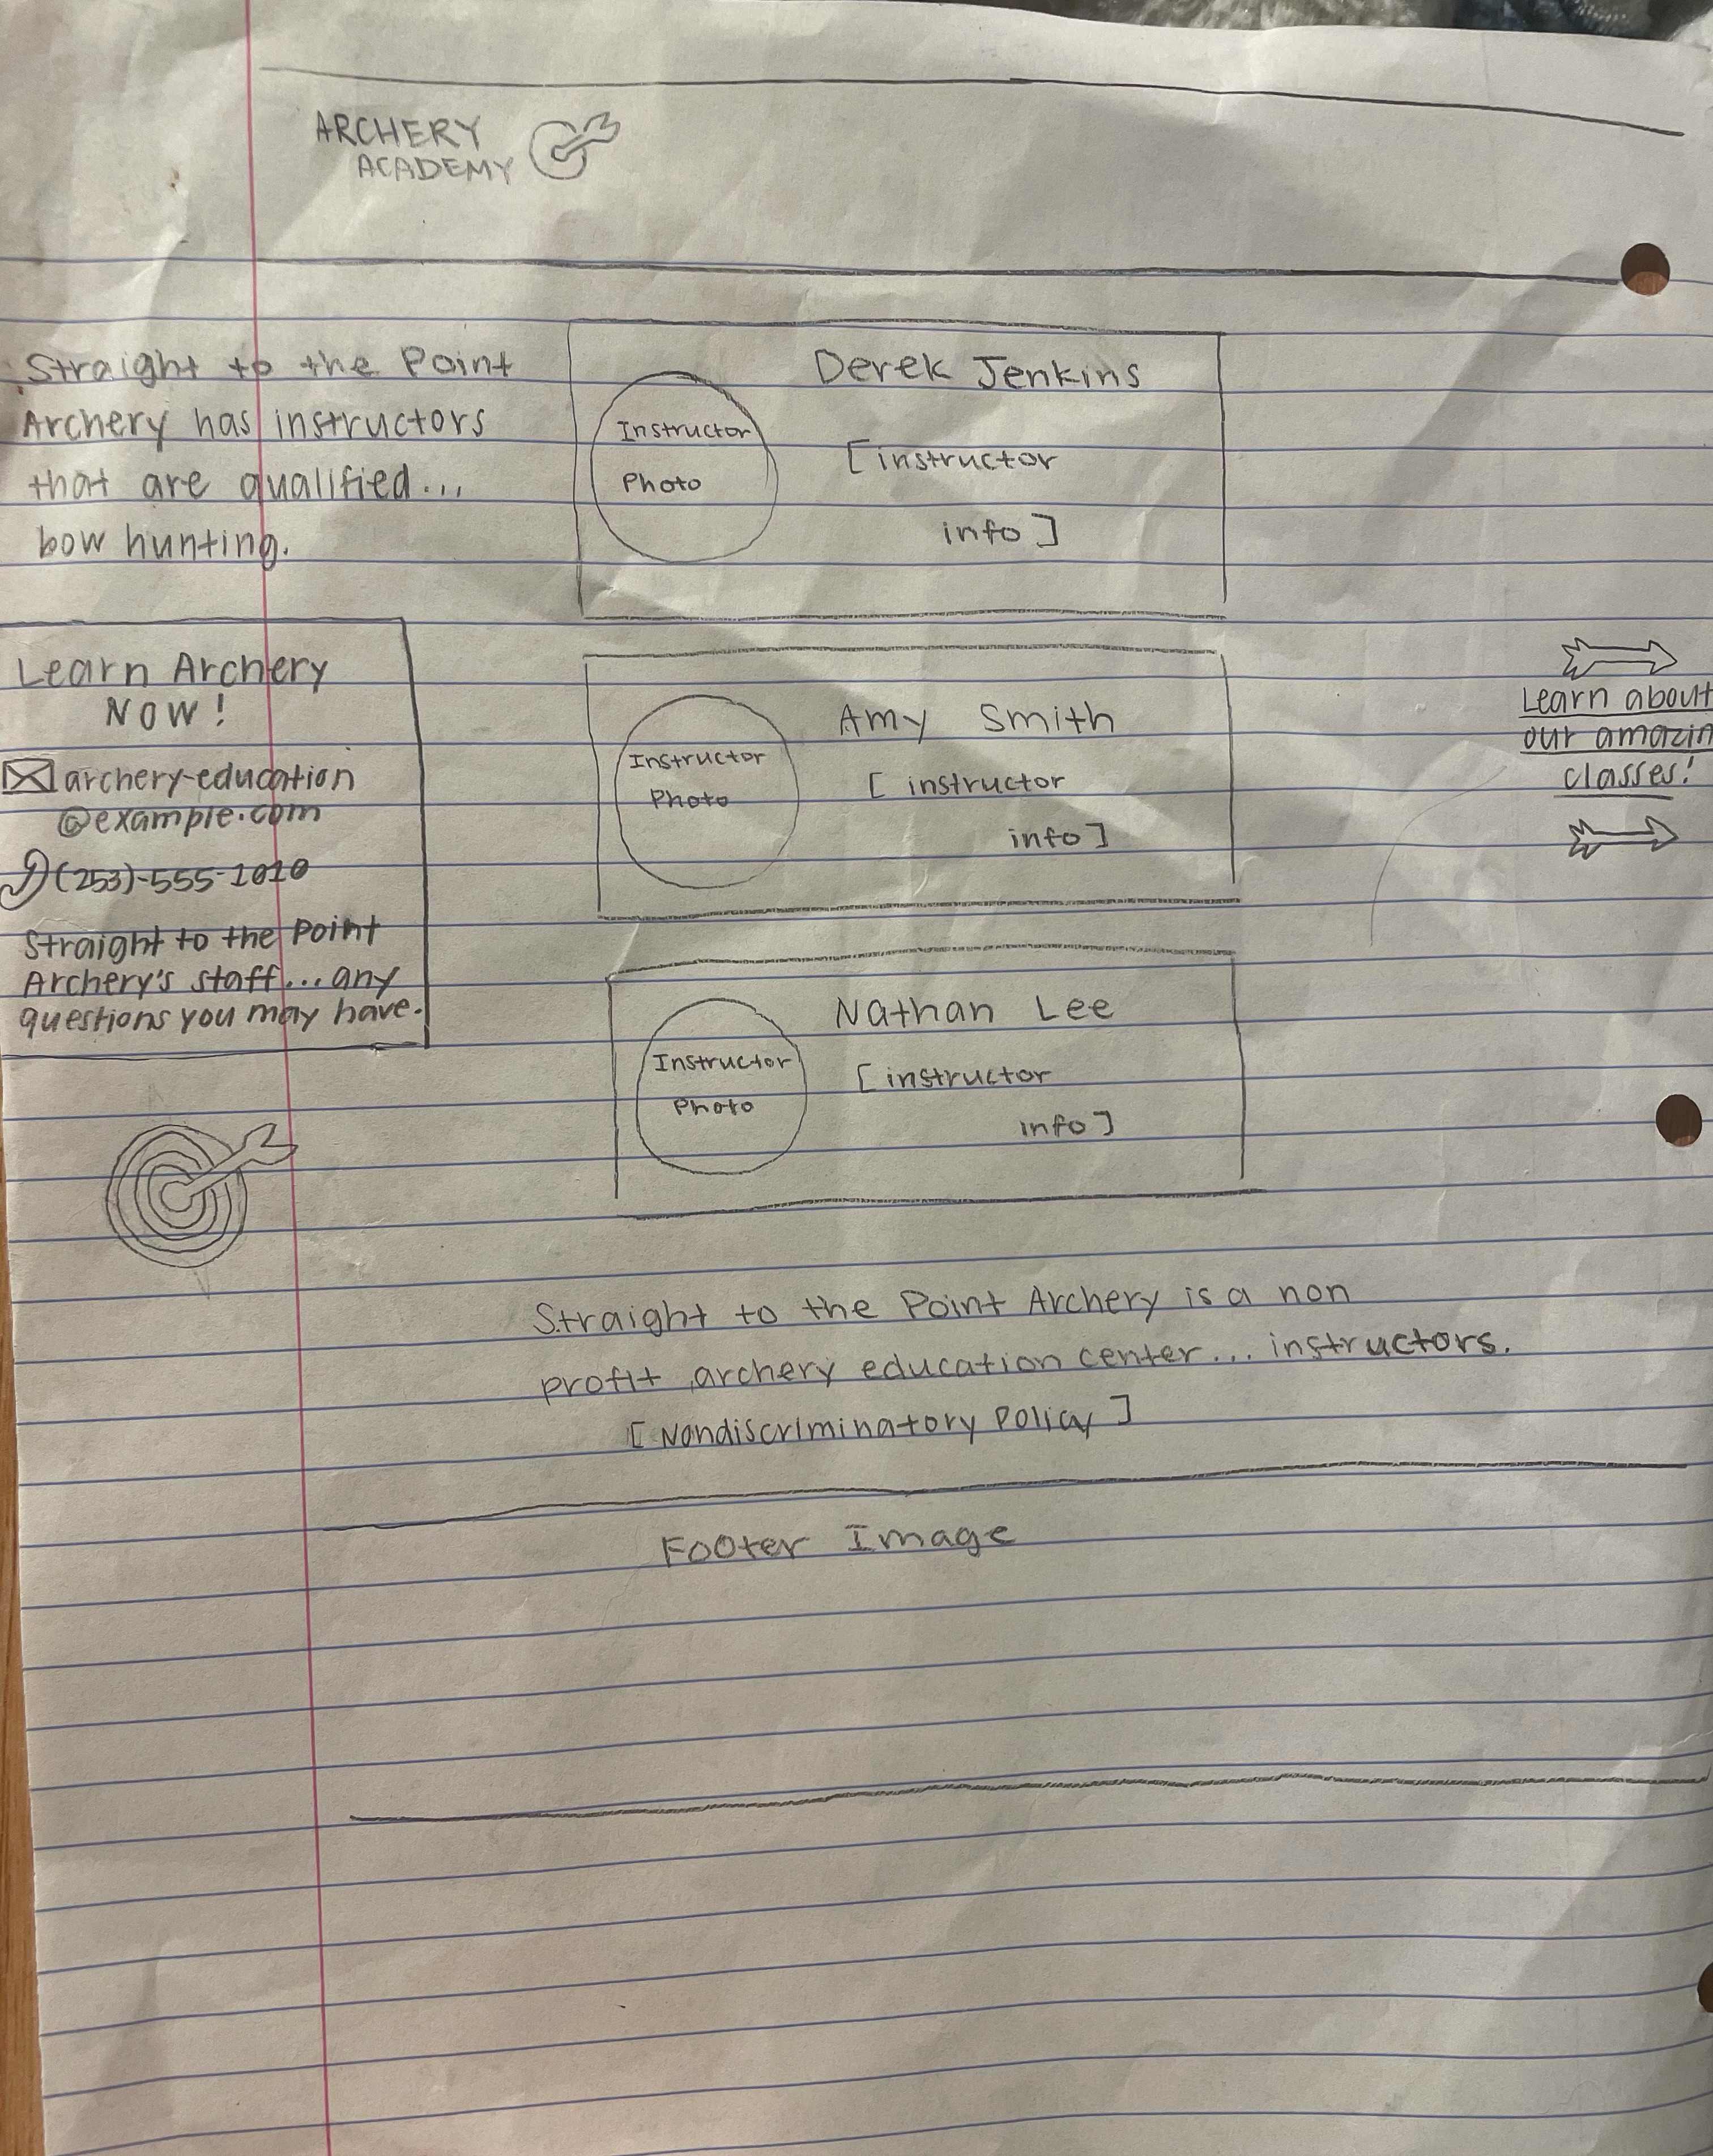 ARCHERY
ACADEMY
Straight to the Point
Archery has instructors
that are qualified...
bow hunting.
Learn Archery
NOW!
archery-education
@example.com
(253)-555-1010
Straight to the Point
Archery's staff...any
questions you may have.
Derek Jenkins
Instructor
Photo
[instructor
info]
Amy Smith
Instructor
Photo
[instructor
info]
Nathan Lee
Instructor
Photo
[instructor
info]
Learn about
our amazin
classes!
Straight to the Point Archery is a non
profit archery education center... instructors.
[Nondiscriminatory Policy]
Footer Image